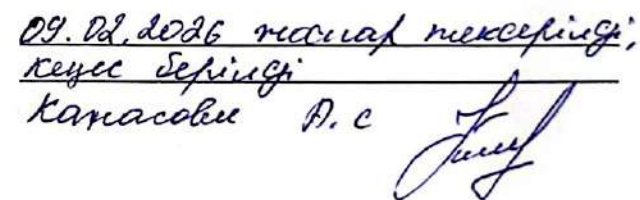 09.02.2026 жоспар тексерілді,
кеңес берілді
А. с